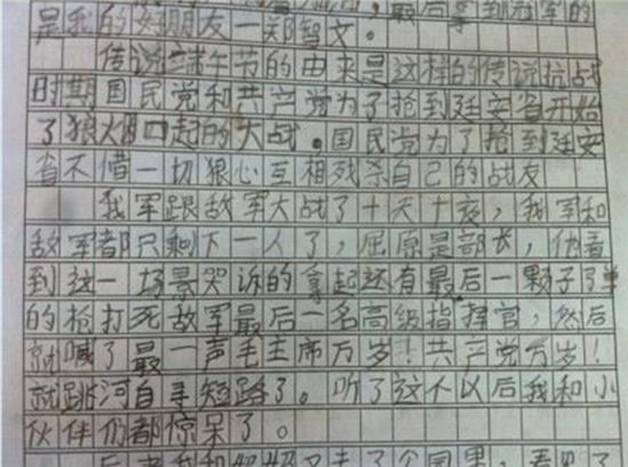 ，最后拿到冠军的
是我的好朋友一郑智文。
传说端午节的由来是这样的传说抗战
时期国民党和共产党为了抢到廷安省开始
了狼烟四起的大战。国民党为了抢到廷安
省不借一切狠心互相残杀自己的战友
我军跟敌军大战了十天十夜，我军和
敌军都只剩下一人了，屈原是部长，他看
到这一场景哭诉的拿起还有最后一颗子弹
的枪打死敌军最后一名高级指挥官，然后
就喊了最一声毛主席万岁！共产党万岁！
就跳河自寻短路了。听了这个以后我和小
伙伴们都惊呆了。
后来我和 又去了个国里，看见了